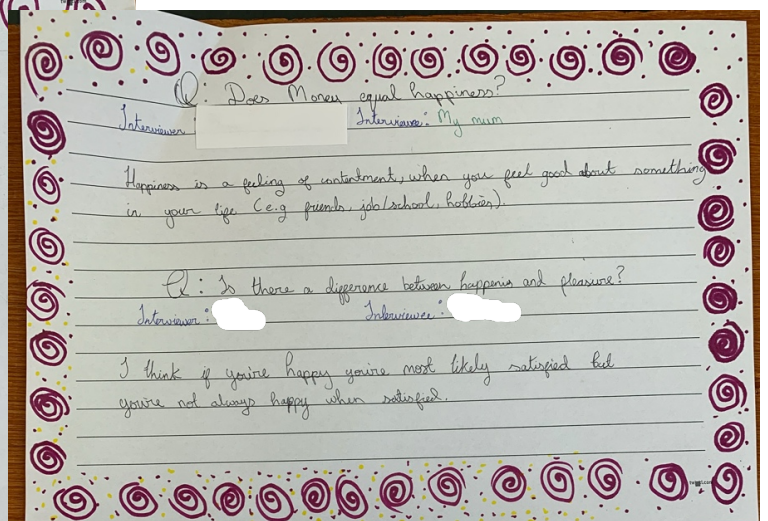 Q: Does Money equal happiness?
Interviewer Interviewee: My mum
Happiness is a feeling of contentment, when you feel good about something
in your life (e.g friends, job/school, hobbies).
Q: Is there a difference between happenis and pleasure?
Interviewer: Interviewee:
I think if you're happy you're most likely satisfied but
you're not always happy when satisfied.